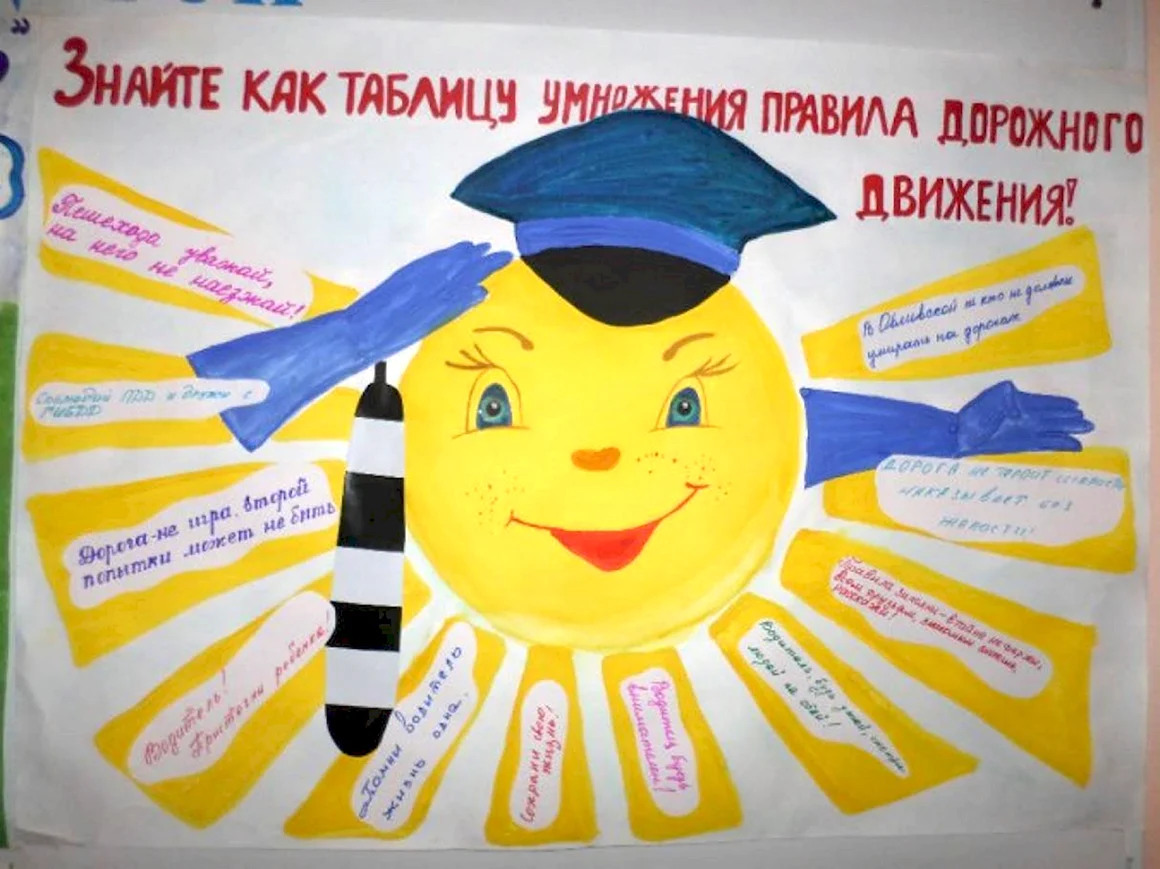 Знайте как таблицу умножения правила дорожного
движения!
Пешехода уважай,
на него не наезжай!
Соблюдай ПДД и дружи с
ГИБДД
Дорога-не игра, второй
попытки может не быть
Водитель!
Притогни ребенка!
Помни водитель
жизнь одна.
Сохрани свою
жизнь!
Водитель будь
внимателен!
Водитель, будь
людей не сбей!
Правила
всем друзьям, знакомым
расскажи!
ДОРОГА не
наказывает без
жалости!
В Обливской ни кто не должен
умирать на дорогах